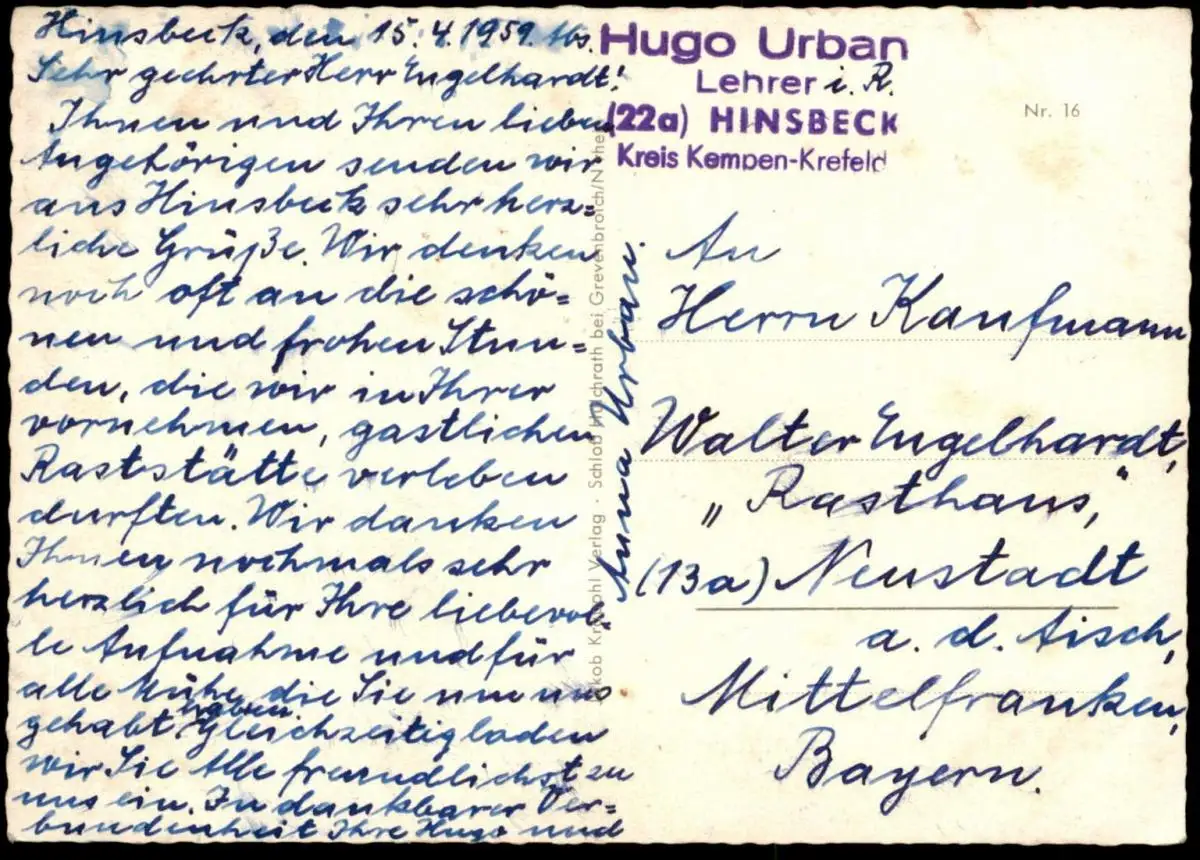 Hinsbeck, den 15.4.1959. Abs.
Sehr geehrter Herr Engelhardt!
Ihnen und Ihren lieben
Angehörigen senden wir
aus Hinsbeck sehr herz=
liche Grüße. Wir denken
noch oft an die schö=
nen und frohen Stun=
den, die wir in Ihrer
vornehmen, gastlichen
Raststätte verleben
durften. Wir danken
Ihnen nochmals sehr
herzlich für Ihre liebevol=
le Aufnahme und für
alle Mühe, die Sie um uns
gehabt haben. Gleichzeitig laden
wir Sie Alle freundlichst zu
uns ein. In dankbarer Ver=
bundenheit Ihre Hugo und
Anna Urban.
Hugo Urban
Lehrer i. R.
(22a) HINSBECK
Kreis Kempen-Krefeld
Nr. 16
Verlag · Schloß bei Grevenbroich
An
Herrn Kaufmann
Walter Engelhardt,
„Rasthaus,"
(13a) Neustadt
a. d. Aisch,
Mittelfranken,
Bayern.